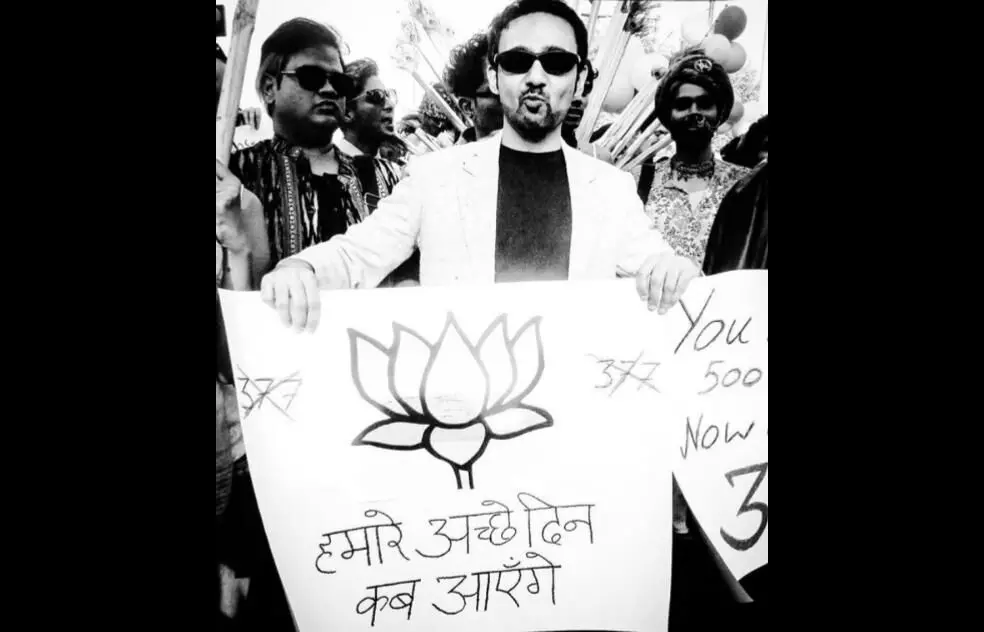 377
377
हमारे अच्छे दिन
कब आएँगे
You
500
Now
3